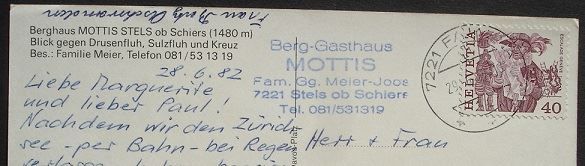 Berghaus MOTTIS STELS ob Schiers (1480 m)
Blick gegen Drusenfluh, Sulzfluh und Kreuz
Bes.: Familie Meier, Telefon 081 / 53 13 19
28.6.82
Liebe Marguerite
und lieber Paul!
Nachdem wir den Zürich
see - per Bahn - bei Regen
Berg-Gasthaus
MOTTIS
Fam. Gg. Meier-Joos
7221 Stels ob Schiers
Tel. 081/531319
Herr + Frau
7221
HELVETIA
40